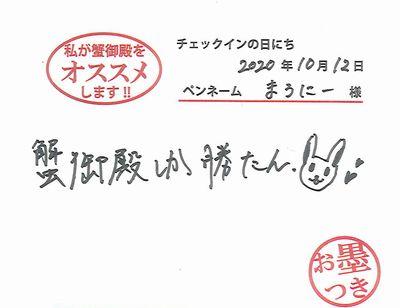 私が蟹御殿を
オススメ
します!!
チェックインの日にち
2020年10月12日
ペンネーム まうにー 様
蟹御殿しか勝たん.
お墨
つき